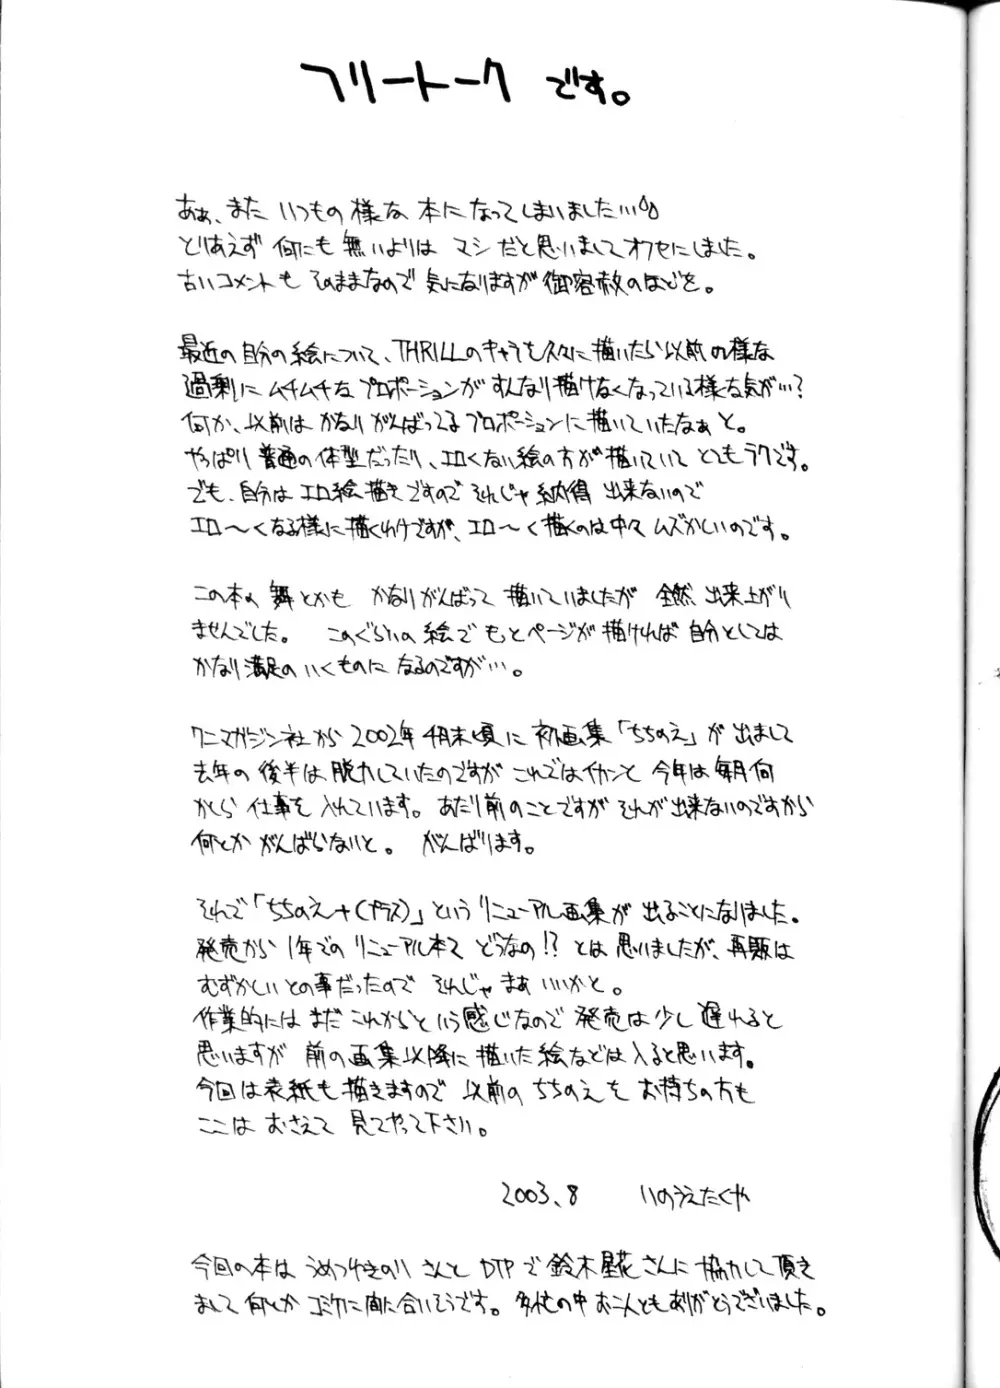 フリートーク です。
あぁ、また いつもの 様な 本に なって しまいました…
とりあえず 何にも 無いよりは マシ だと思いまして オフセにしました。
古いコメントも そのままなので 気になりますが 御容赦のほどを。
最近の 自分の 絵について、THRILLのキャラを久々に 描いたら 以前の様な
過剰に ムチムチな プロポーションが すんなり 描けなくなっている様な気が…?
何か、以前は かなり がんばってる プロポーションに 描いていたなぁ と。
やっぱり 普通の 体型 だったり、エロくない絵の方が 描いていて とてもラクです。
でも、自分は エロ絵描き ですので それじゃ 納得 出来ないので
エロ〜くなる様に 描くわけですが、エロ〜く 描くのは 中々 ムズかしいのです。
この本の 舞とかも かなり がんばって 描いていましたが 全然 出来上がり
ませんでした。 このぐらいの 絵で もっとページが 描ければ 自分としては
かなり 満足の いくものに なるのですが…。
ワニマガジン社 から 2002年 4月末頃 に 初画集「ちちのえ」が 出まして
去年の 後半は 脱力していたのですが これではイカンと 今年は 毎月 何
かしら 仕事を 入れています。 あたり前のことですが それが 出来ないのですから
何とか がんばらないと。 がんばります。
それで「ちちのえ+(プラス)」という リニューアル画集が 出ることになりました。
発売から 1年での リニューアル本て どうなの!? とは 思いましたが、再販は
むずかしい との事 だったので それじゃ まぁ いいかと。
作業的には まだ これからと いう感じなので 発売は 少し 遅れると
思いますが 前の 画集 以降に 描いた 絵などは 入ると思います。
今回は 表紙も 描きますので 以前の ちちのえを お持ちの方も
ここは おさえて 見てやって下さい。
2003.8 いのうえたくや
今回の本は うめつゆきのり さんと DTPで 鈴木星花さんに 協力して 頂き
まして 何とか コミケに 間に合いそうです。 多忙の中 お二人とも ありがとうございました。